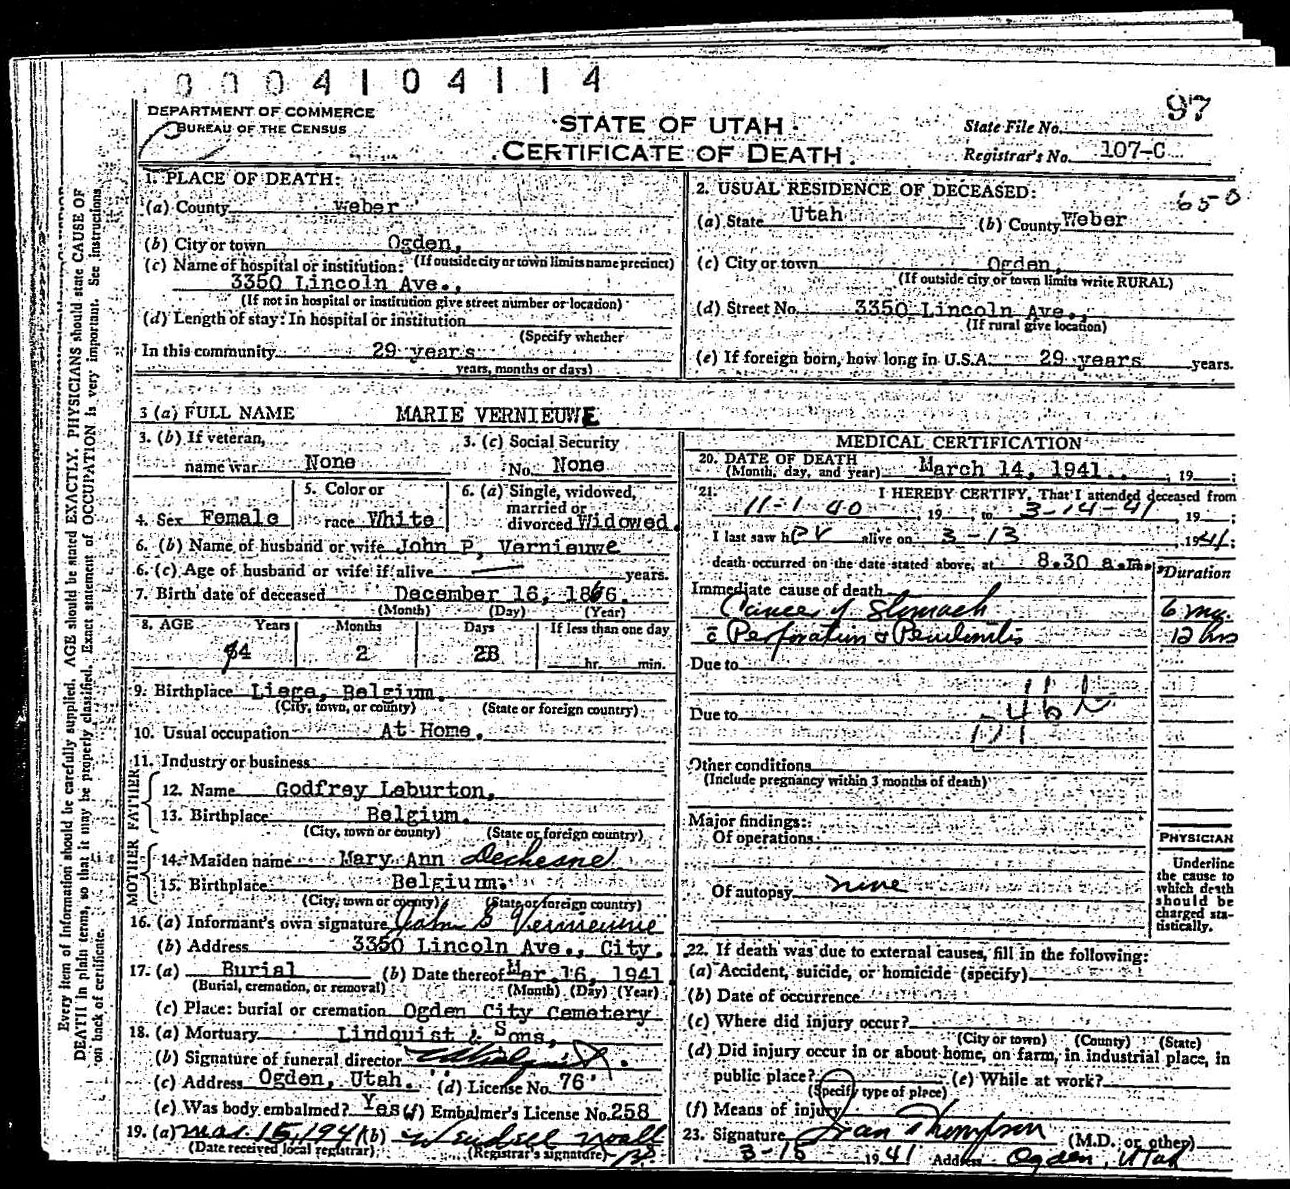 0004104114
97
DEPARTMENT OF COMMERCE
BUREAU OF THE CENSUS
STATE OF UTAH
CERTIFICATE OF DEATH
State File No.
Registrar's No. 107-C
Every item of information should be carefully supplied. AGE should be stated EXACTLY. PHYSICIANS should state CAUSE OF
DEATH in plain terms, so that it may be properly classified. Exact statement of OCCUPATION is very important. See instructions
on back of certificate.
1. PLACE OF DEATH:
(a) County Weber
(b) City or town Ogden,
(If outside city or town limits name precinct)
(c) Name of hospital or institution:
3350 Lincoln Ave.,
(If not in hospital or institution give street number or location)
(d) Length of stay: In hospital or institution
(Specify whether
In this community 29 years
years, months or days)
2. USUAL RESIDENCE OF DECEASED:
(a) State Utah (b) County Weber
(c) City or town Ogden,
(If outside city or town limits write RURAL)
(d) Street No. 3350 Lincoln Ave.,
(If rural give location)
(e) If foreign born, how long in U.S.A. 29 years years.
3 (a) FULL NAME MARIE VERNIEUWE
3. (b) If veteran,
name war None
3. (c) Social Security
No. None
4. Sex Female
5. Color or
race White
6. (a) Single, widowed,
married or
divorced Widowed.
6. (b) Name of husband or wife John P. Vernieuwe
6. (c) Age of husband or wife if alive years.
7. Birth date of deceased December 16, 1866.
(Month) (Day) (Year)
8. AGE Years Months Days If less than one day
2 28 hr. min.
9. Birthplace Liege, Belgium.
(City, town, or county) (State or foreign country)
10. Usual occupation At Home.
11. Industry or business
FATHER
12. Name Godfrey Leburton,
13. Birthplace Belgium.
(City, town or county) (State or foreign country)
MOTHER
14. Maiden name Mary Ann Dechesne
15. Birthplace Belgium.
(City, town or county) (State or foreign country)
16. (a) Informant's own signature John G Vernieuwe
(b) Address 3350 Lincoln Ave., City.
17. (a) Burial (b) Date thereof Mar. 16, 1941
(Burial, cremation, or removal) (Month) (Day) (Year)
(c) Place: burial or cremation Ogden City Cemetery
18. (a) Mortuary Lindquist & Sons,
(b) Signature of funeral director
(c) Address Ogden, Utah. (d) License No. 76
(e) Was body embalmed? Yes (f) Embalmer's License No. 258
19. (a) Mar 15, 1941 (b) Wendell Noall
(Date received local registrar) (Registrar's signature)
MEDICAL CERTIFICATION
20. DATE OF DEATH
(Month, day, and year) March 14, 1941. , 19 ;
21. I HEREBY CERTIFY, That I attended deceased from
11-1 40 , 19 , to 3-14-41 , 19 ;
I last saw her alive on 3-13 , 1941;
death occurred on the date stated above, at 8.30 a.m.
Duration
Immediate cause of death
Cancer of Stomach 6 mo.
c̄ Perforation & Peritonitis 12 hrs
Due to
46b
Due to
Other conditions
(Include pregnancy within 3 months of death)
Major findings:
Of operations
Of autopsy none
PHYSICIAN
Underline
the cause to
which death
should be
charged sta-
tistically.
22. If death was due to external causes, fill in the following:
(a) Accident, suicide, or homicide (specify)
(b) Date of occurrence
(c) Where did injury occur?
(City or town) (County) (State)
(d) Did injury occur in or about home, on farm, in industrial place, in
public place? (e) While at work?
(Specify type of place)
(f) Means of injury
23. Signature Ivan Thompson (M.D. or other)
3-15 1941 Address Ogden, Utah